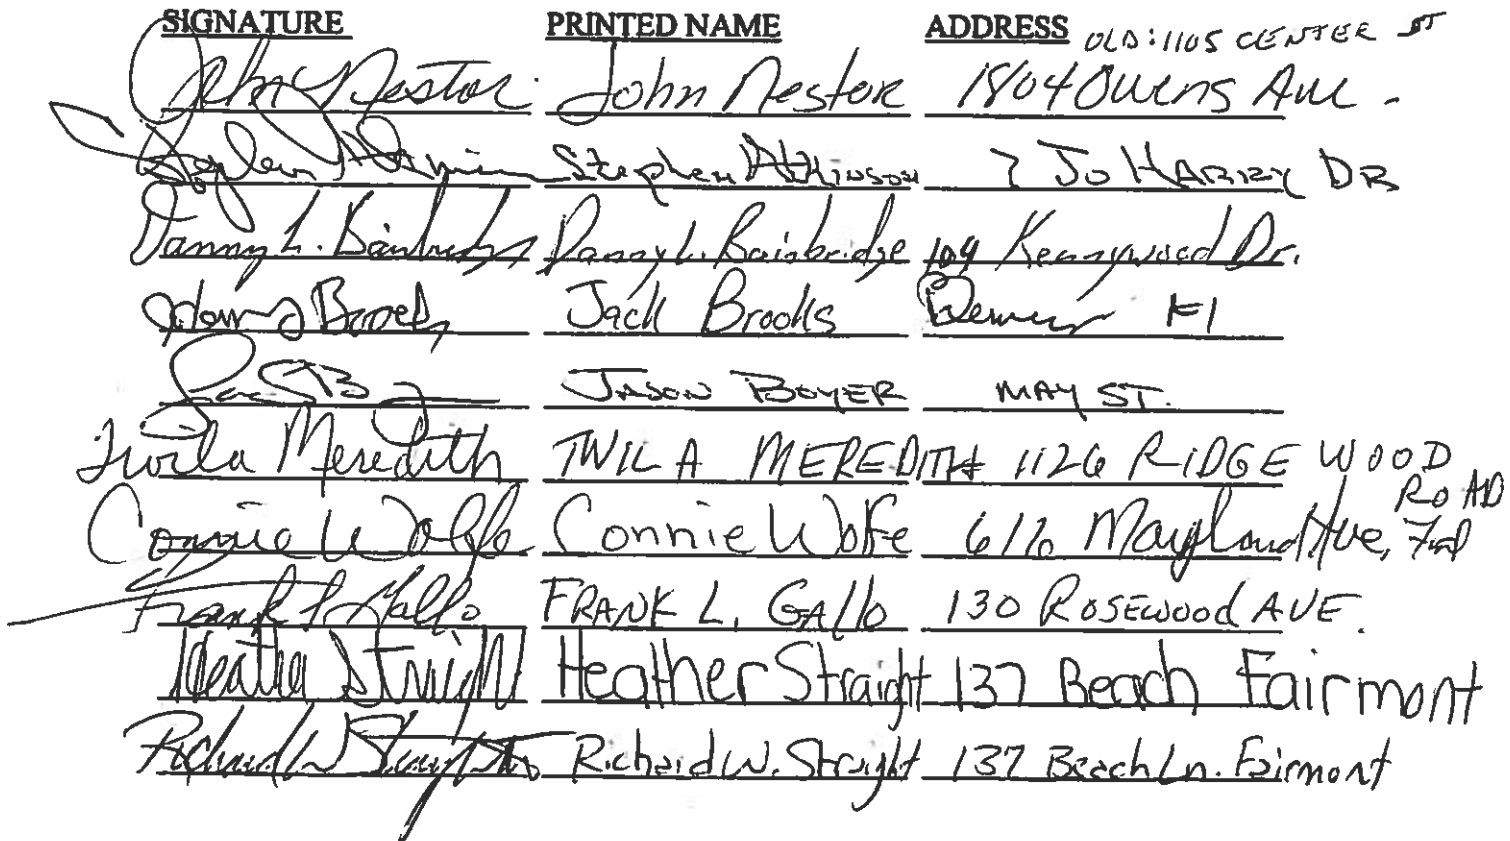 SIGNATURE PRINTED NAME ADDRESS OLD: 1105 CENTER ST
John Nestor John Nestor 1804 Owens Ave.
Stephen Atkinson 7 Jo HARRY DR
Danny L. Bainbridge Danny L. Bainbridge 109 Kennywood Dr.
Jack Brooks
JASON BOYER MAY ST.
Twila Meredith TWILA MEREDITH 1126 RIDGE WOOD
ROAD
Connie Wolfe Connie Wolfe 616 Maryland Ave,
Frank L Gallo FRANK L. GAllo 130 ROSEWOOD AVE.
Heather Straight Heather Straight 137 Beach Fairmont
Richard W Straight Richard W. Straight 137 Beach Ln. Fairmont